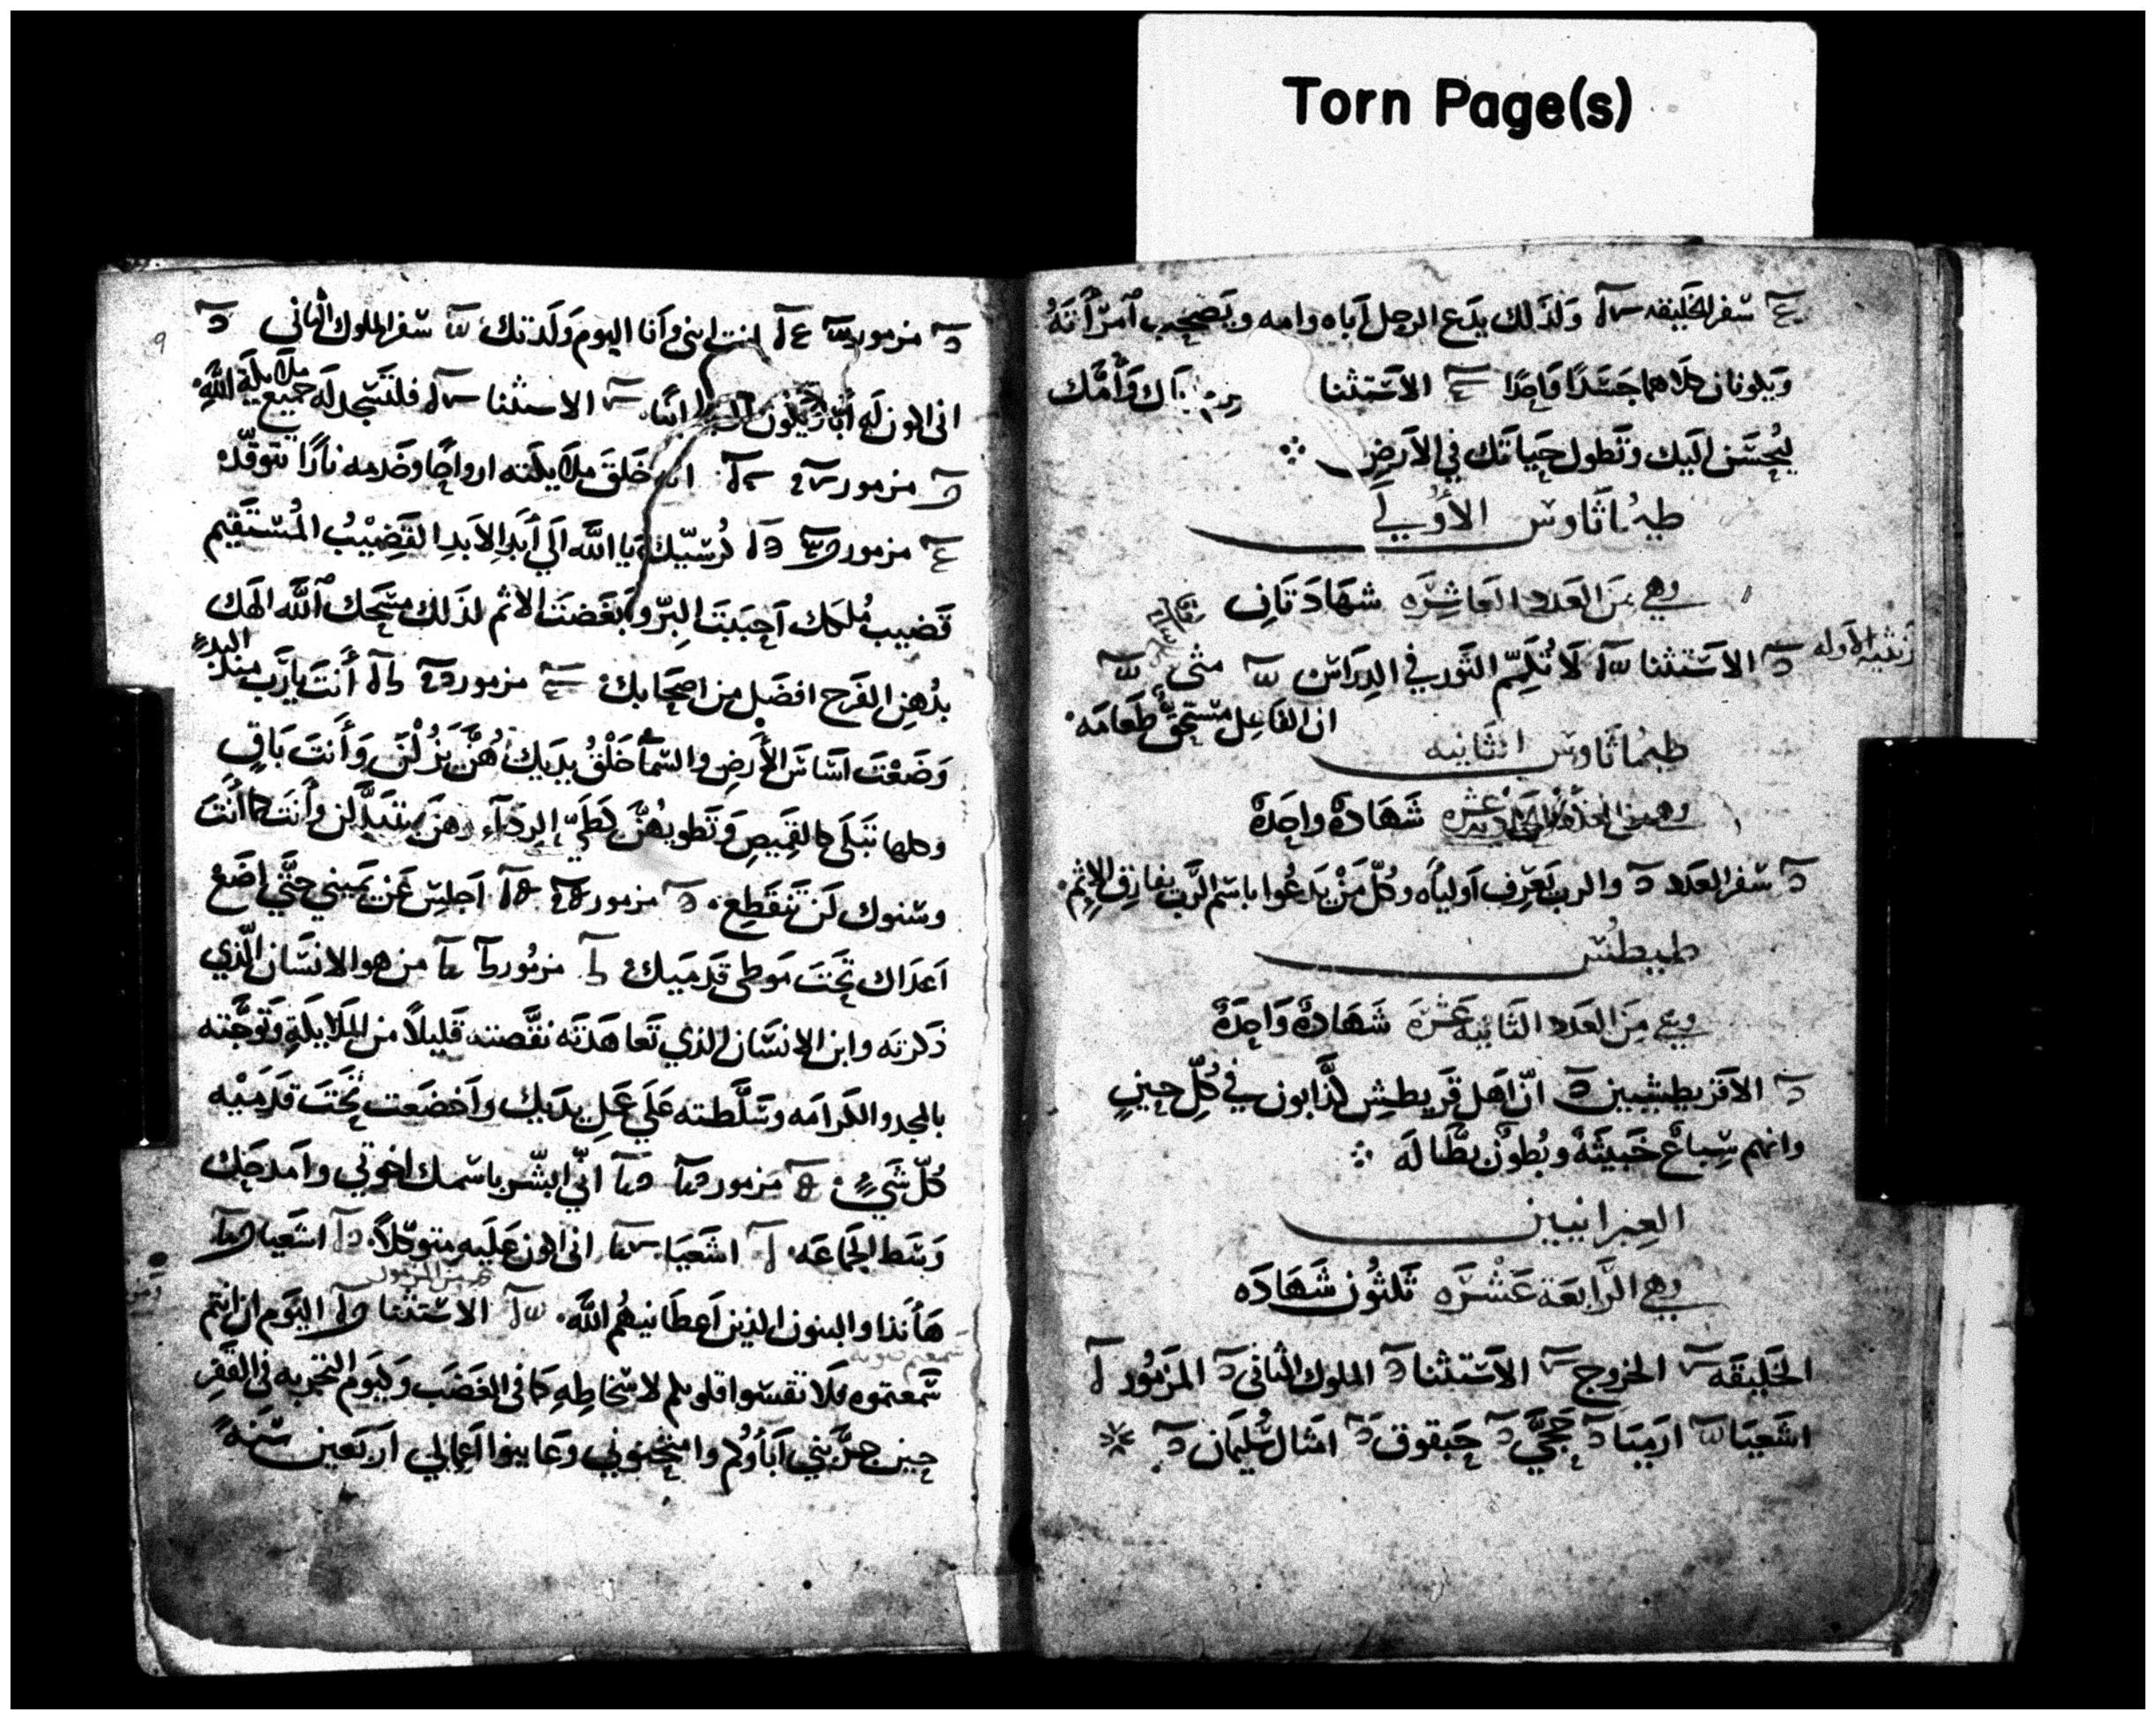 Torn Page(s)
سفر الخليقه وَلذَلك يدَع الرجل اَباه وامه ويَصحِب اَمرَأَتَهُ
وَيكونان كلاهما جَسَدًا وَاحِدًا الاَستثنا اَباك وَأُمَّك
ليُحسَن اليك وتَطول حيَاتك في الاَرضِ
طيماثَاوس الأولي
وهي مِنَ العَدد العَاشِرَه شهَادَتانِ
الاَستثنا لَا تُكِمّ الثَور في الدِرَاس متى
ان الفَاعِل مستحقٌ طَعَامَه
طيماثاوس الثَانيه
شَهَادَة واحِدَة
سفر العدد والرب يَعرِف اَولياَه وكُلّ مَنْ يَدعُوا باسم الرَّب يفارِق الاِثم
طيطُس
وهي مِنَ العَدد الثَانيه عَشرَه شَهَادَة وَاحِدَة
الاقريطشيين انّ اَهل قريطِش كذَّابون في كُلّ حِينٍ
وانهم سِباع خَبيثَة وبُطون بطَّالَه
العِبرانيين
وهي الرَّابعَة عَشْرَه ثَلثُون شَهَادَه
الخَليقَه الخروج الاَستثنا الملوك الثاني المَزمُور
اشَعيَا ارَميَا حَجَّي حَبقوق امثال سُلَيمَان
9
مزمور انت ابني وَاَنا اليوم وَلَدتك سفر الملوك الثاني
اني اكون لَه اَبًا وَيكون لي ابنًا الاستثنا فلتَسجد لَه جميع ملايكة اللَّهِ
مزمور خَلقَ ملايكته ارواحًا وخَدمه نارًا تتوقّد
مزمور كُرسيّك يَا اللَّه اَلي أَبَدِ الاَبدِ القَضِيْبُ المُستَقيم
قَضيب مُلكك اَحبَبتَ البِرّ وَابغَضتَ الاثم لذَلك مسَحَك اَللَّه الَهك
بدُهنِ الفَرح افضَل من اصحَابك مزمور أَنتَ يَارَب منذ البدءِ
وَضَعْتَ اسَاسَ الأَرضِ والسَمآ خَلْقُ يدَيك هُنَّ يَزُلنَ وَأَنتَ بَاقٍ
وكلها تَبلَى كالقَمِيصِ وَتَطويهُنَّ كَطَيّ الرِدَآءِ وهنَّ يتبدَّلن وأَنت كما أَنتَ
وسنوك لَن تَنقَطِع مزمور اَجلِس عَنْ يَميني حَتَّي اضَعُ
اَعدَاك تَحتَ مَوطى قَدمَيك مَزمُور مَن هو الانسَان الَّذي
ذَكرتَه وابن الانسَان الذي تَعاهَدتَه نقَّصته قَليلاً من المَلايكَة وتَوجَّته
بالمجد والكَرامَه وسَلَّطته عَلَي عَملِ يدَيك واَخضَعت تَحتَ قدَمَيْه
كُلّ شَيءٍ مَزمور انّي ابشّر باسمك اخوتي وامدحَك
وَسَط الجَمَاعَه اشَعيَا اني اكون عَلَيه متوكلاً اشَعيَا
هَأَنذا والبنون الذين اَعطَانيهُم اللَّه الاستثنا اليَوم ان انتم
سَمعتموه فَلَا تقسّوا قلوبكم لاسخاطِهِ كمَا في الغضَب وكيَوم التَجربه في القَفرِ
حين جرَّبَني اَبَأوكُم وامتحَنوني وعَاينوا اَعمَالي اربَعين سَنَةً